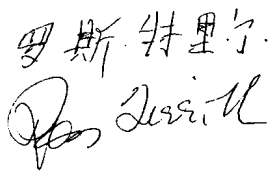 罗斯·特里尔
Ross Terrill